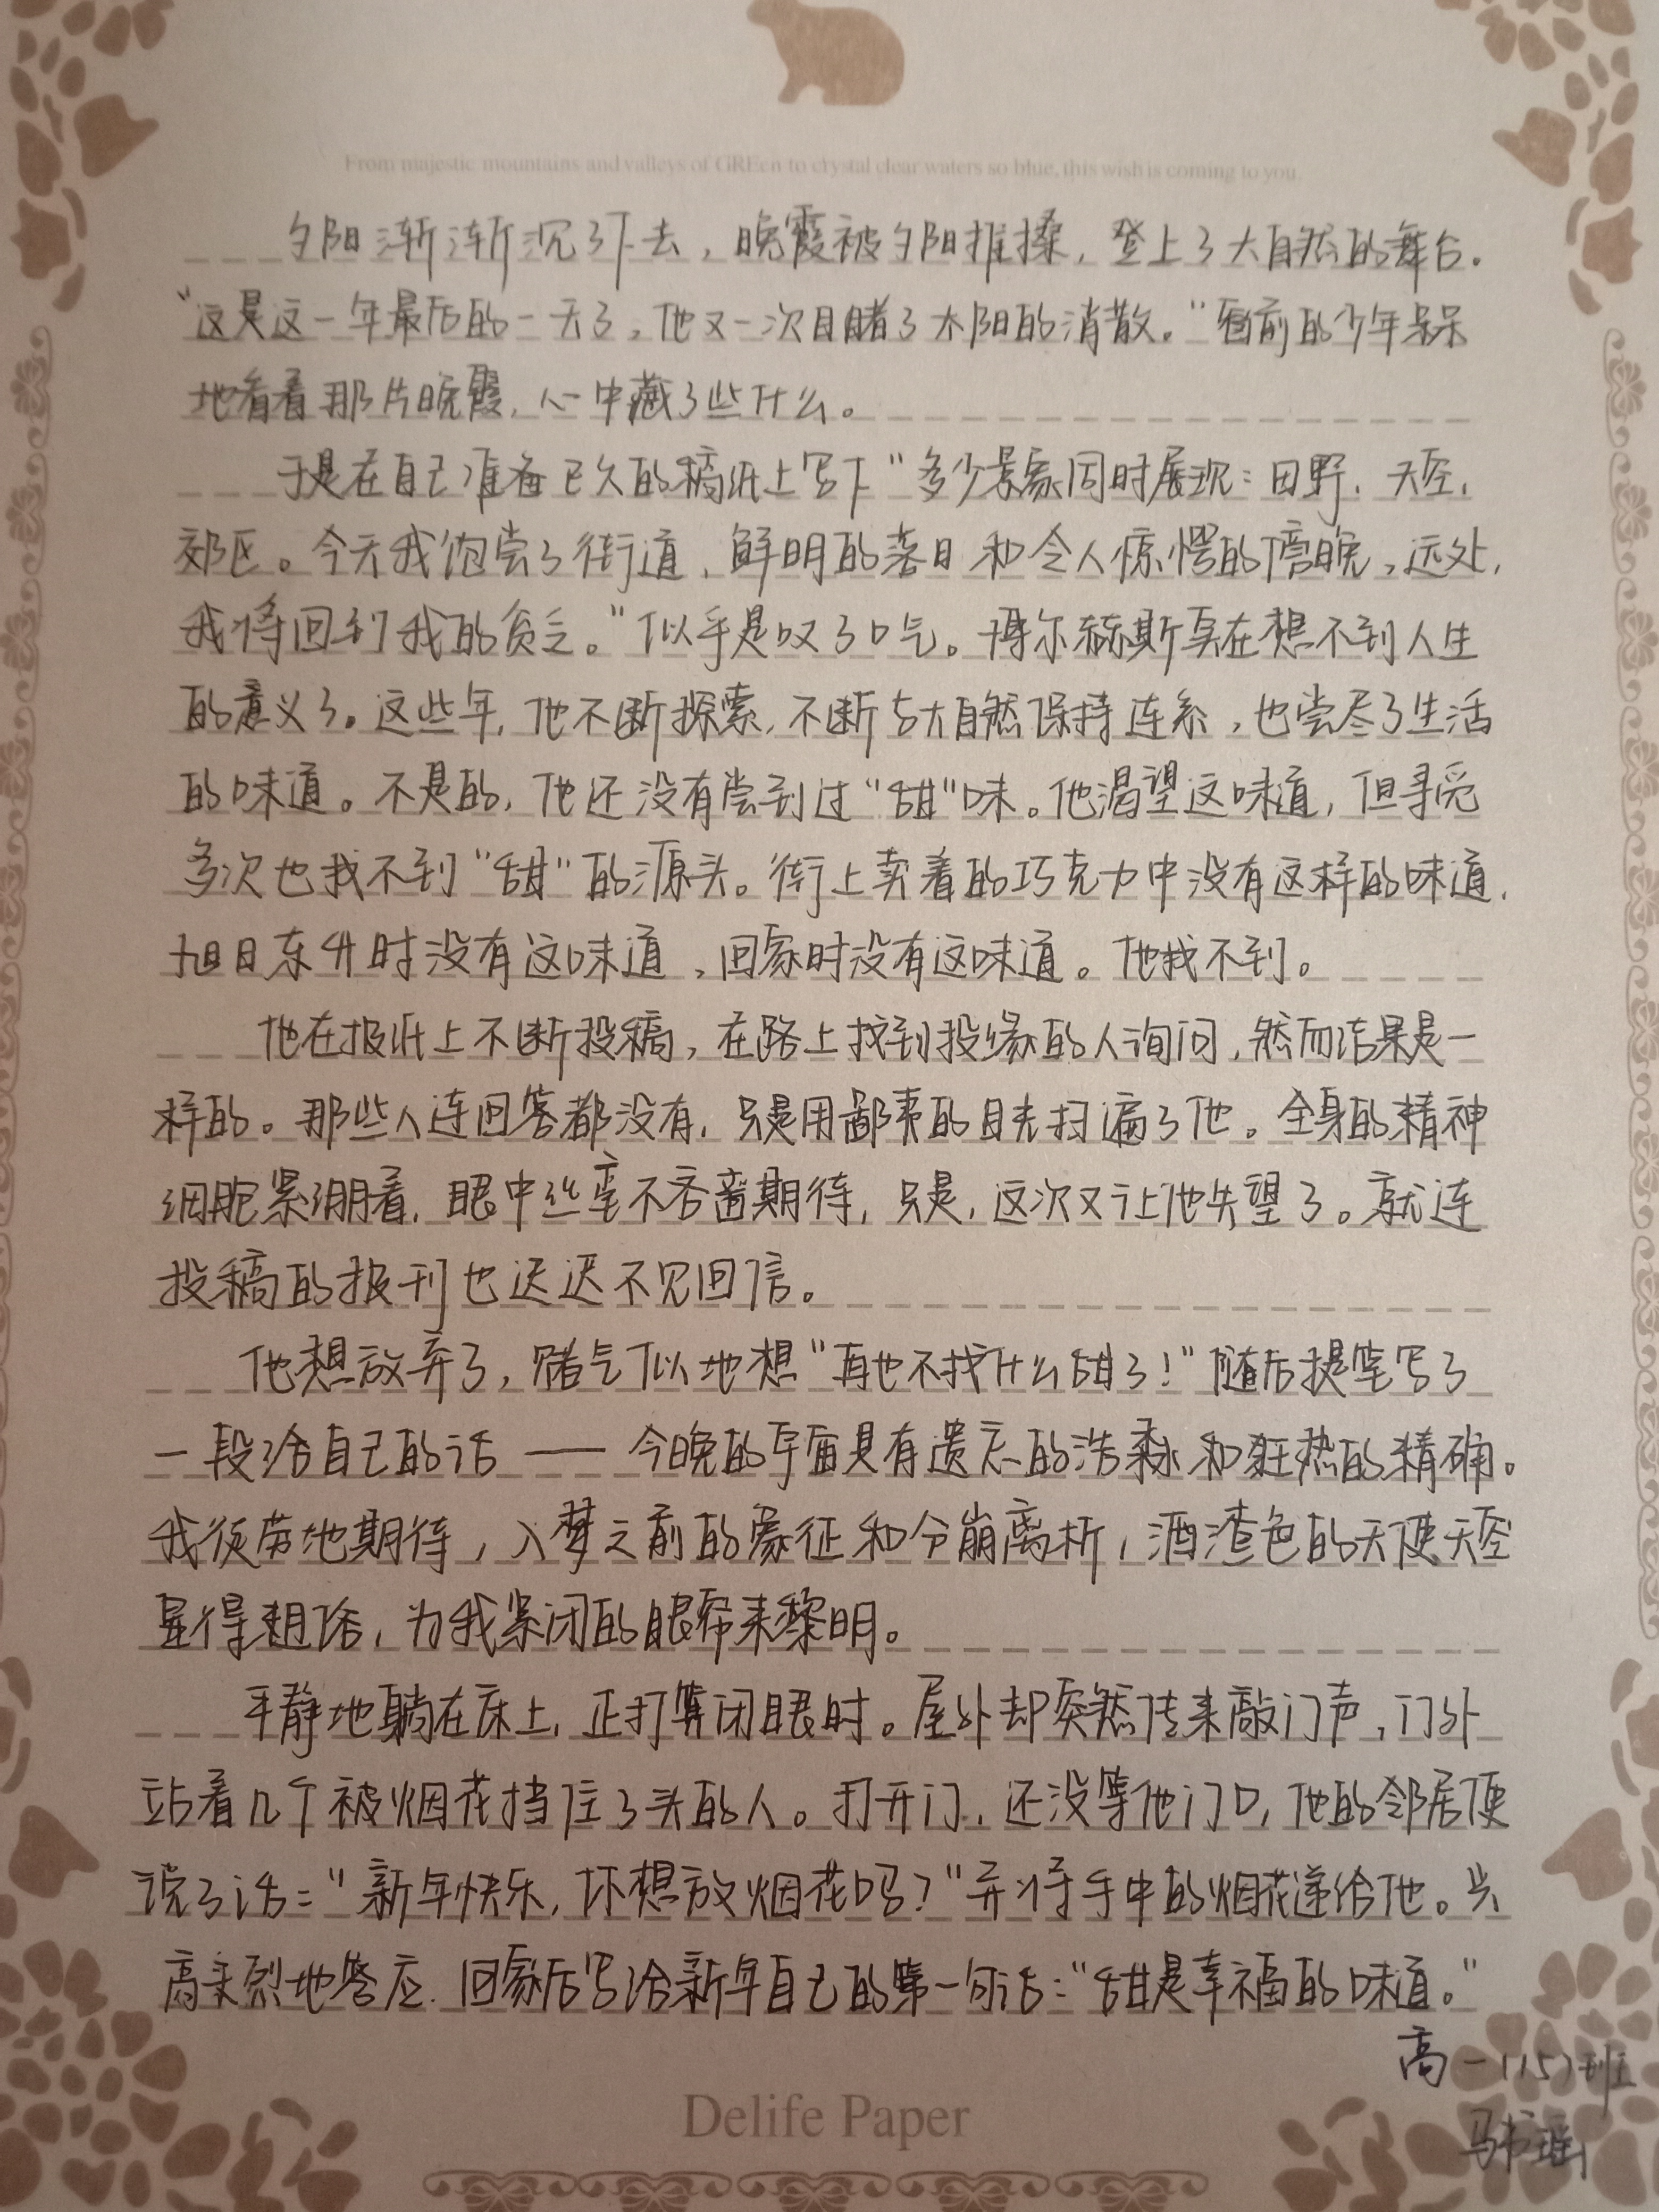 From majestic mountains and valleys of GREen to crystal clear waters so blue, this wish is coming to you.
夕阳渐渐沉了下去，晚霞被夕阳推搡，登上了大自然的舞台。
“这是这一年最后的一天了，他又一次目睹了太阳的消散。”窗前的少年呆呆
地看着那片晚霞，心中藏了些什么。
于是在自己准备已久的稿纸上写下“多少景象同时展现：田野，天空，
郊区。今天我饱尝了街道，鲜明的落日和令人惊愕的傍晚，远处，
我将回到我的贫乏。”似乎是叹了口气。博尔赫斯实在想不到人生
的意义了。这些年，他不断探索，不断与大自然保持连系，也尝尽了生活
的味道。不是的，他还没有尝到过“甜”味。他渴望这味道，但寻觅
多次也找不到“甜”的源头。街上卖着的巧克力中没有这样的味道，
旭日东升时没有这味道，回家时没有这味道。他找不到。
他在报纸上不断投稿，在路上找到投缘的人询问，然而结果是一
样的。那些人连回答都没有，只是用鄙夷的目光扫遍了他。全身的精神
细胞紧绷着，眼中丝毫不吝啬期待，只是，这次又让他失望了。就连
投稿的报刊也迟迟不见回信。
他想放弃了，赌气似地想“再也不找什么甜了！”随后提笔写了
一段给自己的话——今晚的宇宙具有遗忘的浩淼和狂热的精确。
我徒劳地期待，入梦之前的象征和分崩离析，酒渣色的天使天空
显得粗俗，为我紧闭的眼带来黎明。
平静地躺在床上，正打算闭眼时。屋外却突然传来敲门声，门外
站着几个被烟花挡住了头的人。打开门，还没等他门口，他的邻居便
说了话：“新年快乐，怀想放烟花吗？”并将手中的烟花递给他。兴
高采烈地答应。回家后写给新年自己的第一句话：“甜是幸福的味道。”
高一（15）班
马书瑶
Delife Paper